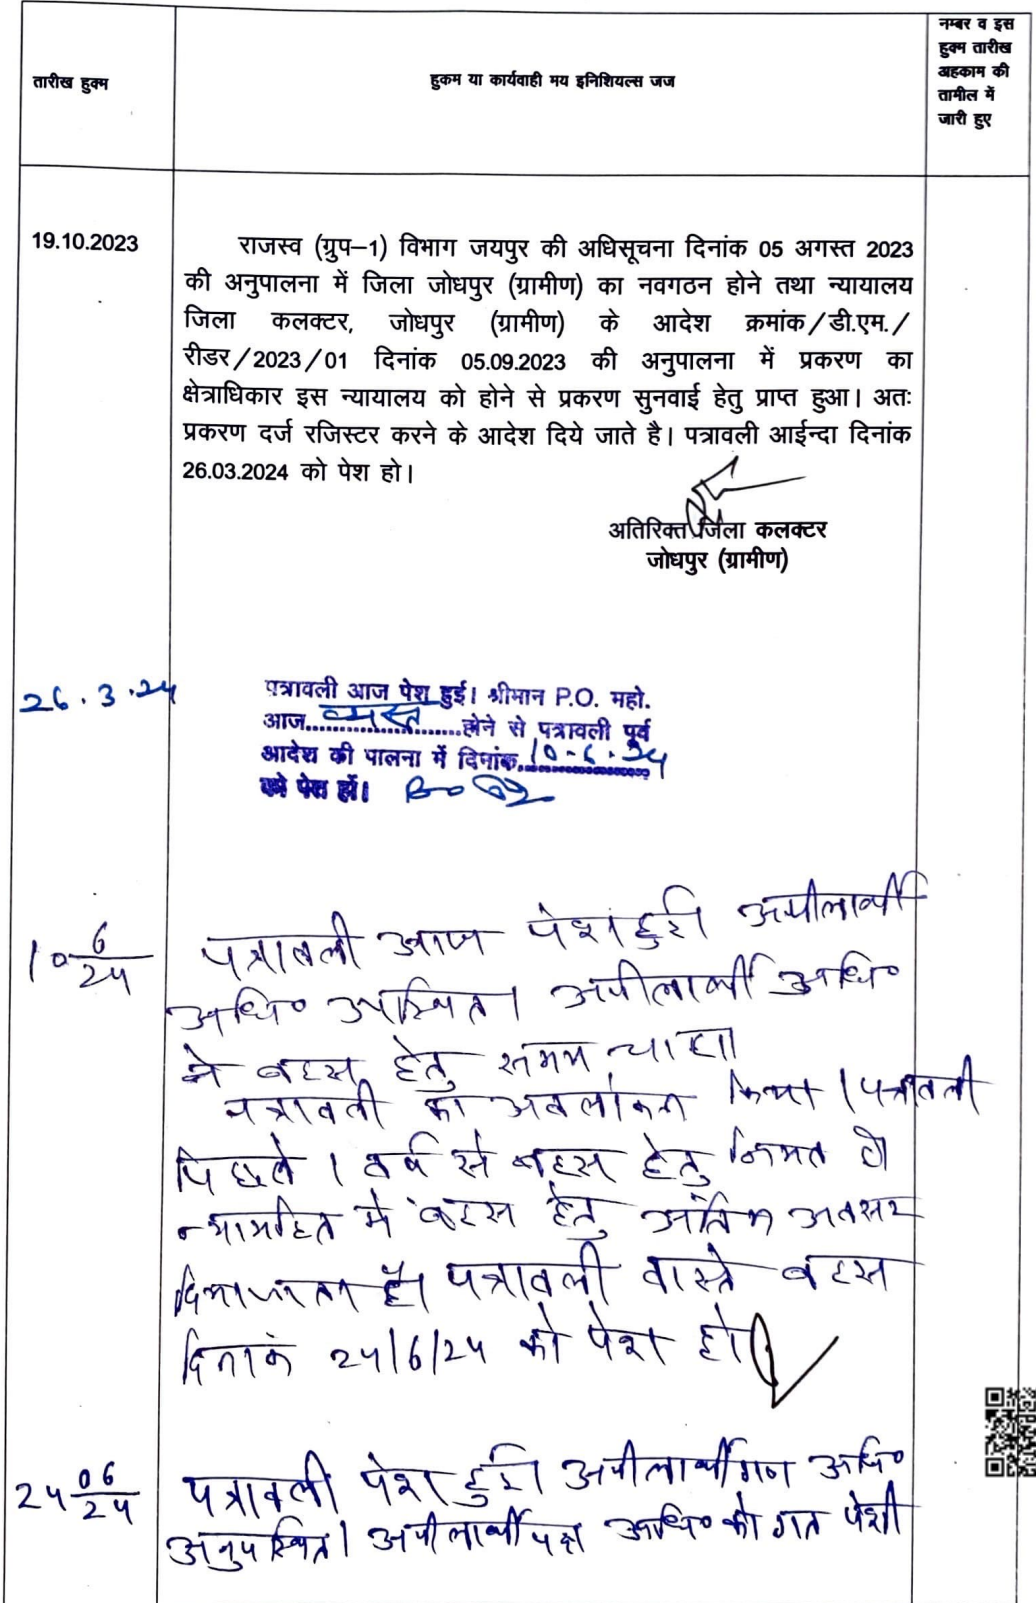 तारीख हुक्म
हुकम या कार्यवाही मय इनिशियल्स जज
नम्बर व इस
हुक्म तारीख
अहकाम की
तामील में
जारी हुए
19.10.2023
राजस्व (ग्रुप–1) विभाग जयपुर की अधिसूचना दिनांक 05 अगस्त 2023
की अनुपालना में जिला जोधपुर (ग्रामीण) का नवगठन होने तथा न्यायालय
जिला कलक्टर, जोधपुर (ग्रामीण) के आदेश क्रमांक/डी.एम./
रीडर/2023/01 दिनांक 05.09.2023 की अनुपालना में प्रकरण का
क्षेत्राधिकार इस न्यायालय को होने से प्रकरण सुनवाई हेतु प्राप्त हुआ। अतः
प्रकरण दर्ज रजिस्टर करने के आदेश दिये जाते है। पत्रावली आईन्दा दिनांक
26.03.2024 को पेश हो।
अतिरिक्त जिला कलक्टर
जोधपुर (ग्रामीण)
26.3.24
पत्रावली आज पेश हुई। श्रीमान P.O. महो.
आज व्यस्त होने से पत्रावली पूर्व
आदेश की पालना में दिनांक 10-6-24
को पेश हों।
10 6/24
पत्रावली आज पेश हुई। अपीलार्थी
अधि० उपस्थित। अपीलार्थी अधि०
ने बहस हेतु समय चाहा।
पत्रावली का अवलोकन किया। पत्रावली
पिछले 1 वर्ष से बहस हेतु नियत है।
न्यायहित में बहस हेतु अंतिम अवसर
दिया जाता है। पत्रावली वास्ते बहस
दिनांक 24/6/24 को पेश हो।
24 06/24
पत्रावली पेश हुई। अपीलार्थीगण अधि०
अनुपस्थित। अपीलार्थी पक्ष अधि० को गत पेशी